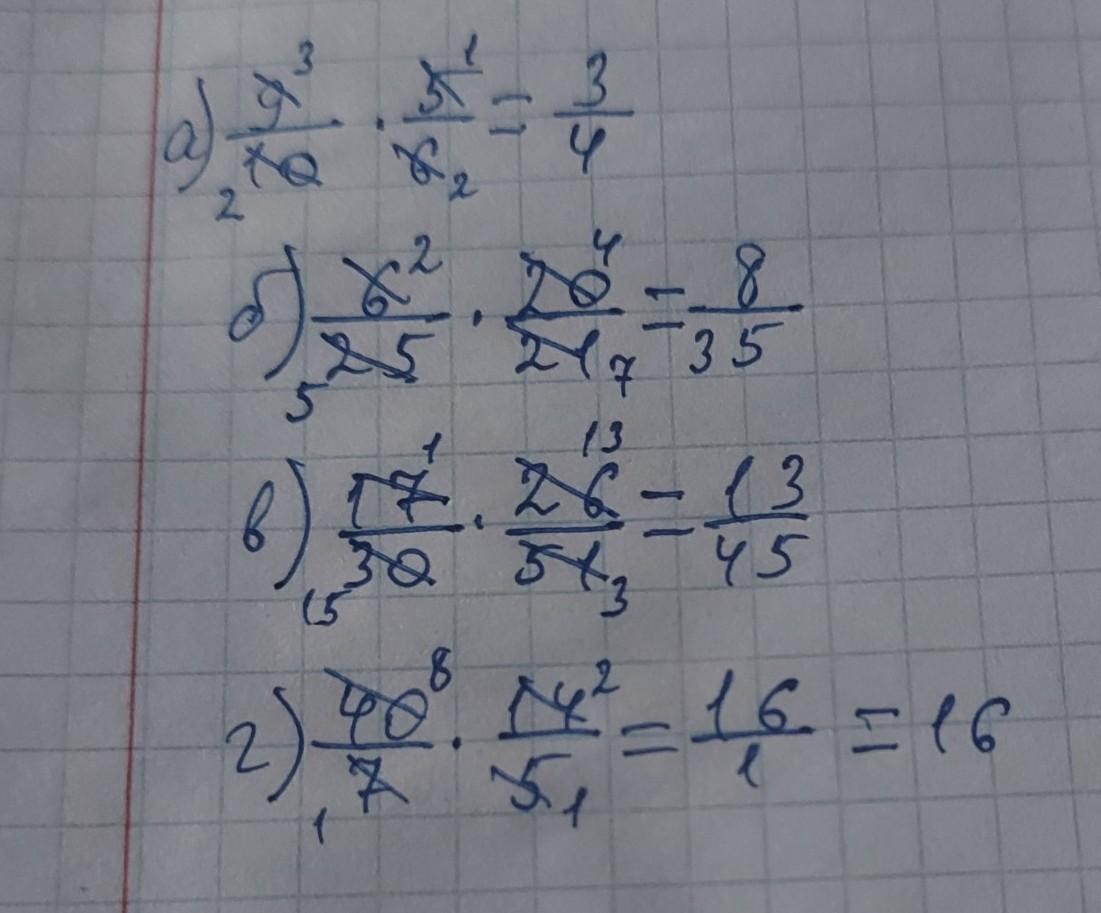 а) 9³/₂10 · 5¹/6₂ = 3/4
б) 6²/₅25 · 20⁴/21₇ = 8/35
в) 17¹/₁₅30 · 26¹³/51₃ = 13/45
г) 40⁸/₁7 · 14²/5₁ = 16/1 = 16